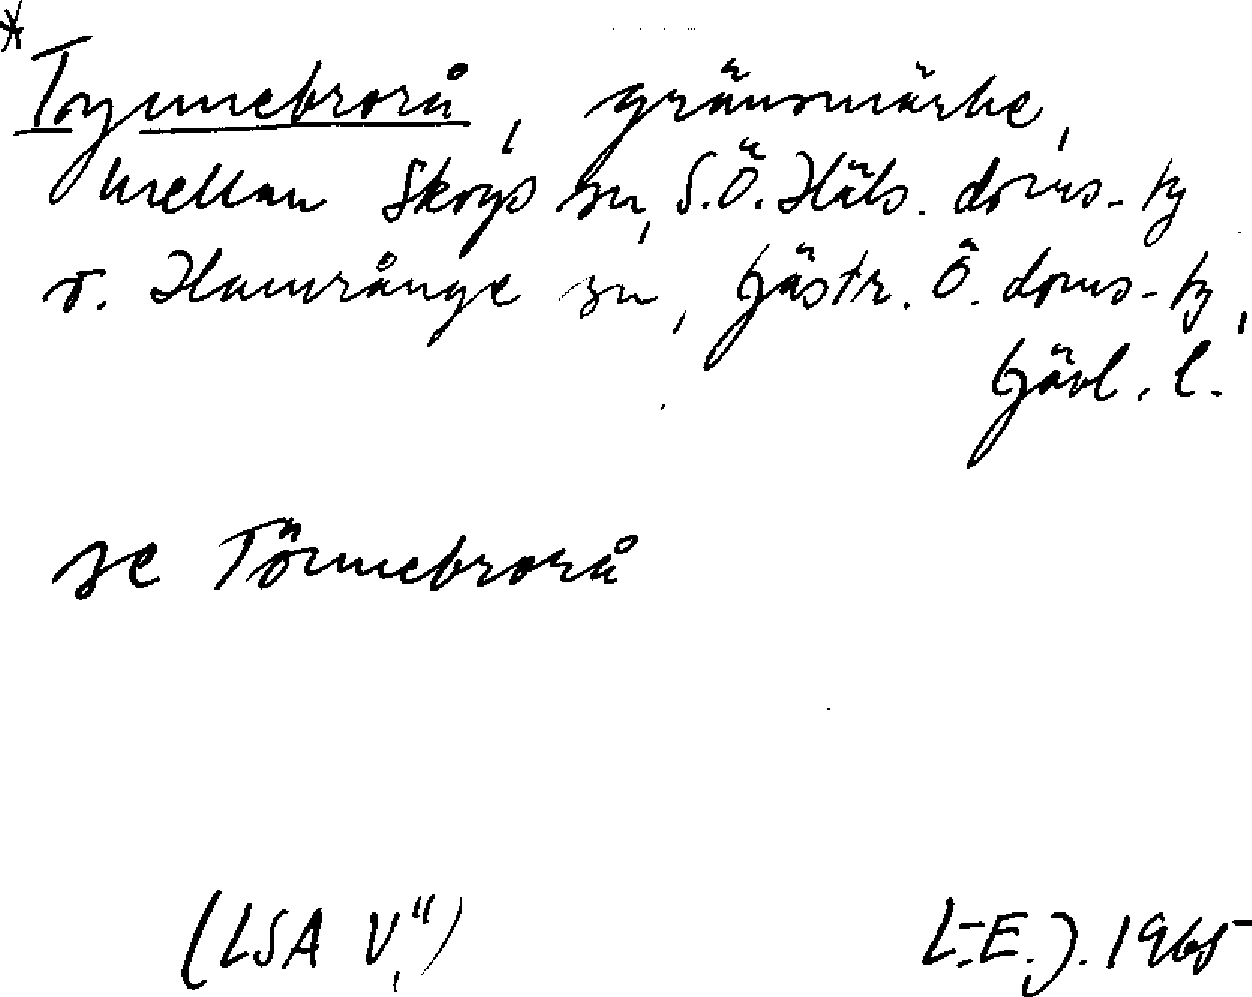 * Tynnebrorå, gränsmärke,
mellan Skogs sn, S.Ö. Häls. doms-tg
o. Hamrånge sn, Gästr. Ö. doms-tg,
Gävl. l.
se Tönnebrorå
(LSA V")
L-E.J. 1965